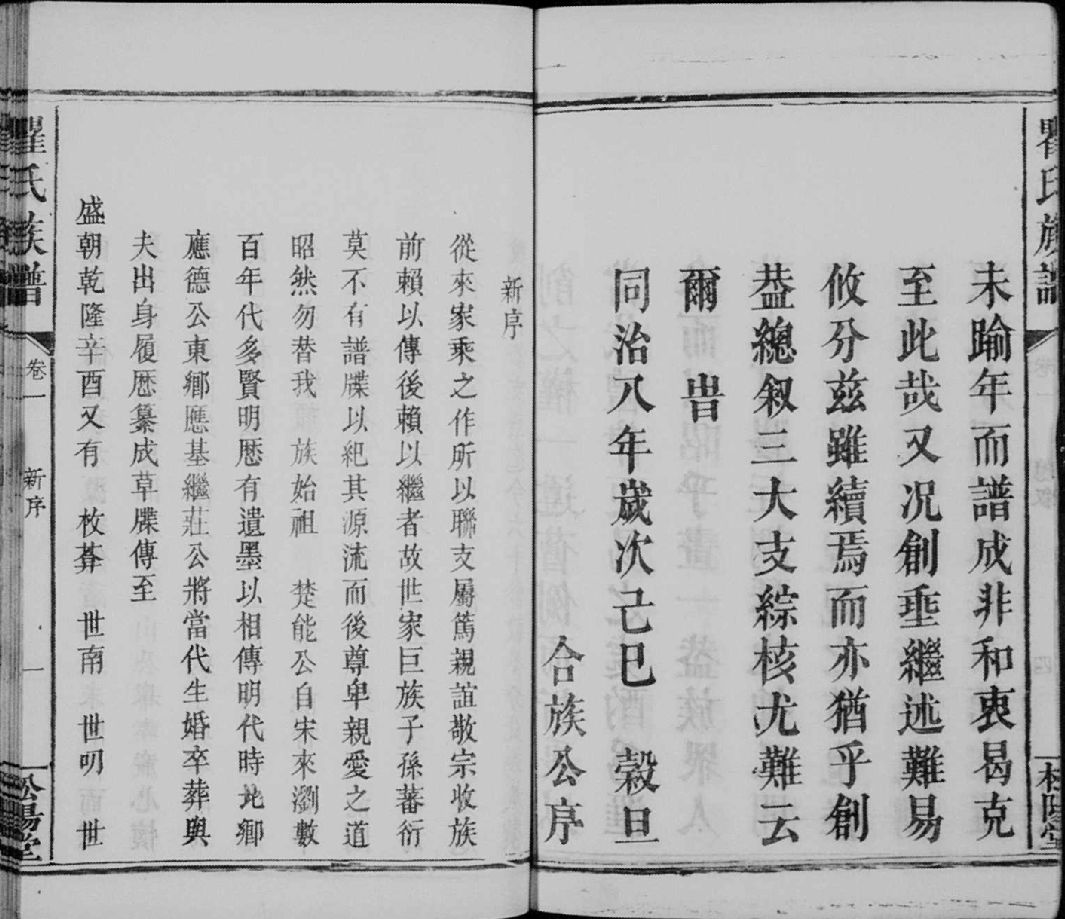 瞿氏族譜
松陽堂
未踰年而譜成非和衷曷克
至此哉又况創垂繼述難易
攸分兹雖續焉而亦猶乎創
葢總叙三大支綜核尤難云
爾 旹
同治八年歲次己巳 榖旦
合族公序
新序
從來家乘之作所以聯支屬篤親誼敬宗收族
前賴以傳後賴以繼者故世家巨族子孫蕃衍
莫不有譜牒以紀其源流而後尊卑親愛之道
昭然勿替我 族始祖 楚能公自宋來瀏數
百年代多賢明歷有遺墨以相傳明代時地鄉
應德公東鄉應基繼莊公將當代生婚卒葬與
夫出身履歷纂成草牒傳至
盛朝乾隆辛酉又有 枚莽 世南 世明 世
瞿氏族譜 卷一 新序 一 松陽堂